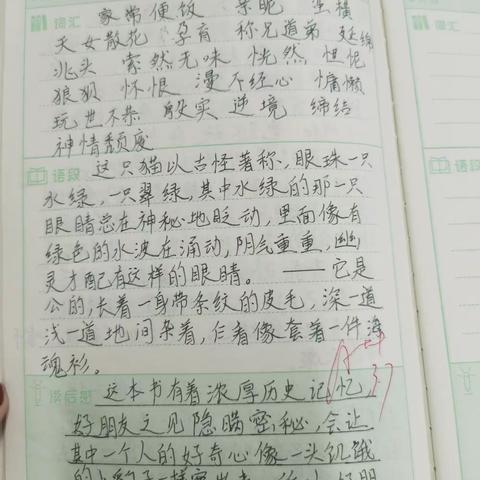 词汇
家常便饭 亲昵 蛮横
天女散花 孕育 称兄道弟 延绵
兆头 索然无味 恍然 忸怩
狼狈 怀恨 漫不经心 慵懒
玩世不恭 殷实 逆境 缔结
神情颓废
语段
这只猫以古怪著称,眼珠一只
水绿,一只翠绿,其中水绿的那一只
眼睛总在神秘地眨动,里面像有
绿色的水波在涌动,阴气重重,幽
灵才配有这样的眼睛。 ——它是
公的,长着一身带条纹的皮毛,深一道
浅一道地间杂着,乍看像套着一件海
魂衫。
读后感
这本书有着浓厚历史记忆,
好朋友之见隐瞒密秘,会让
其中一个人的好奇心像一头饥饿
的小豹子一样窜出来
A++
3.7
词汇